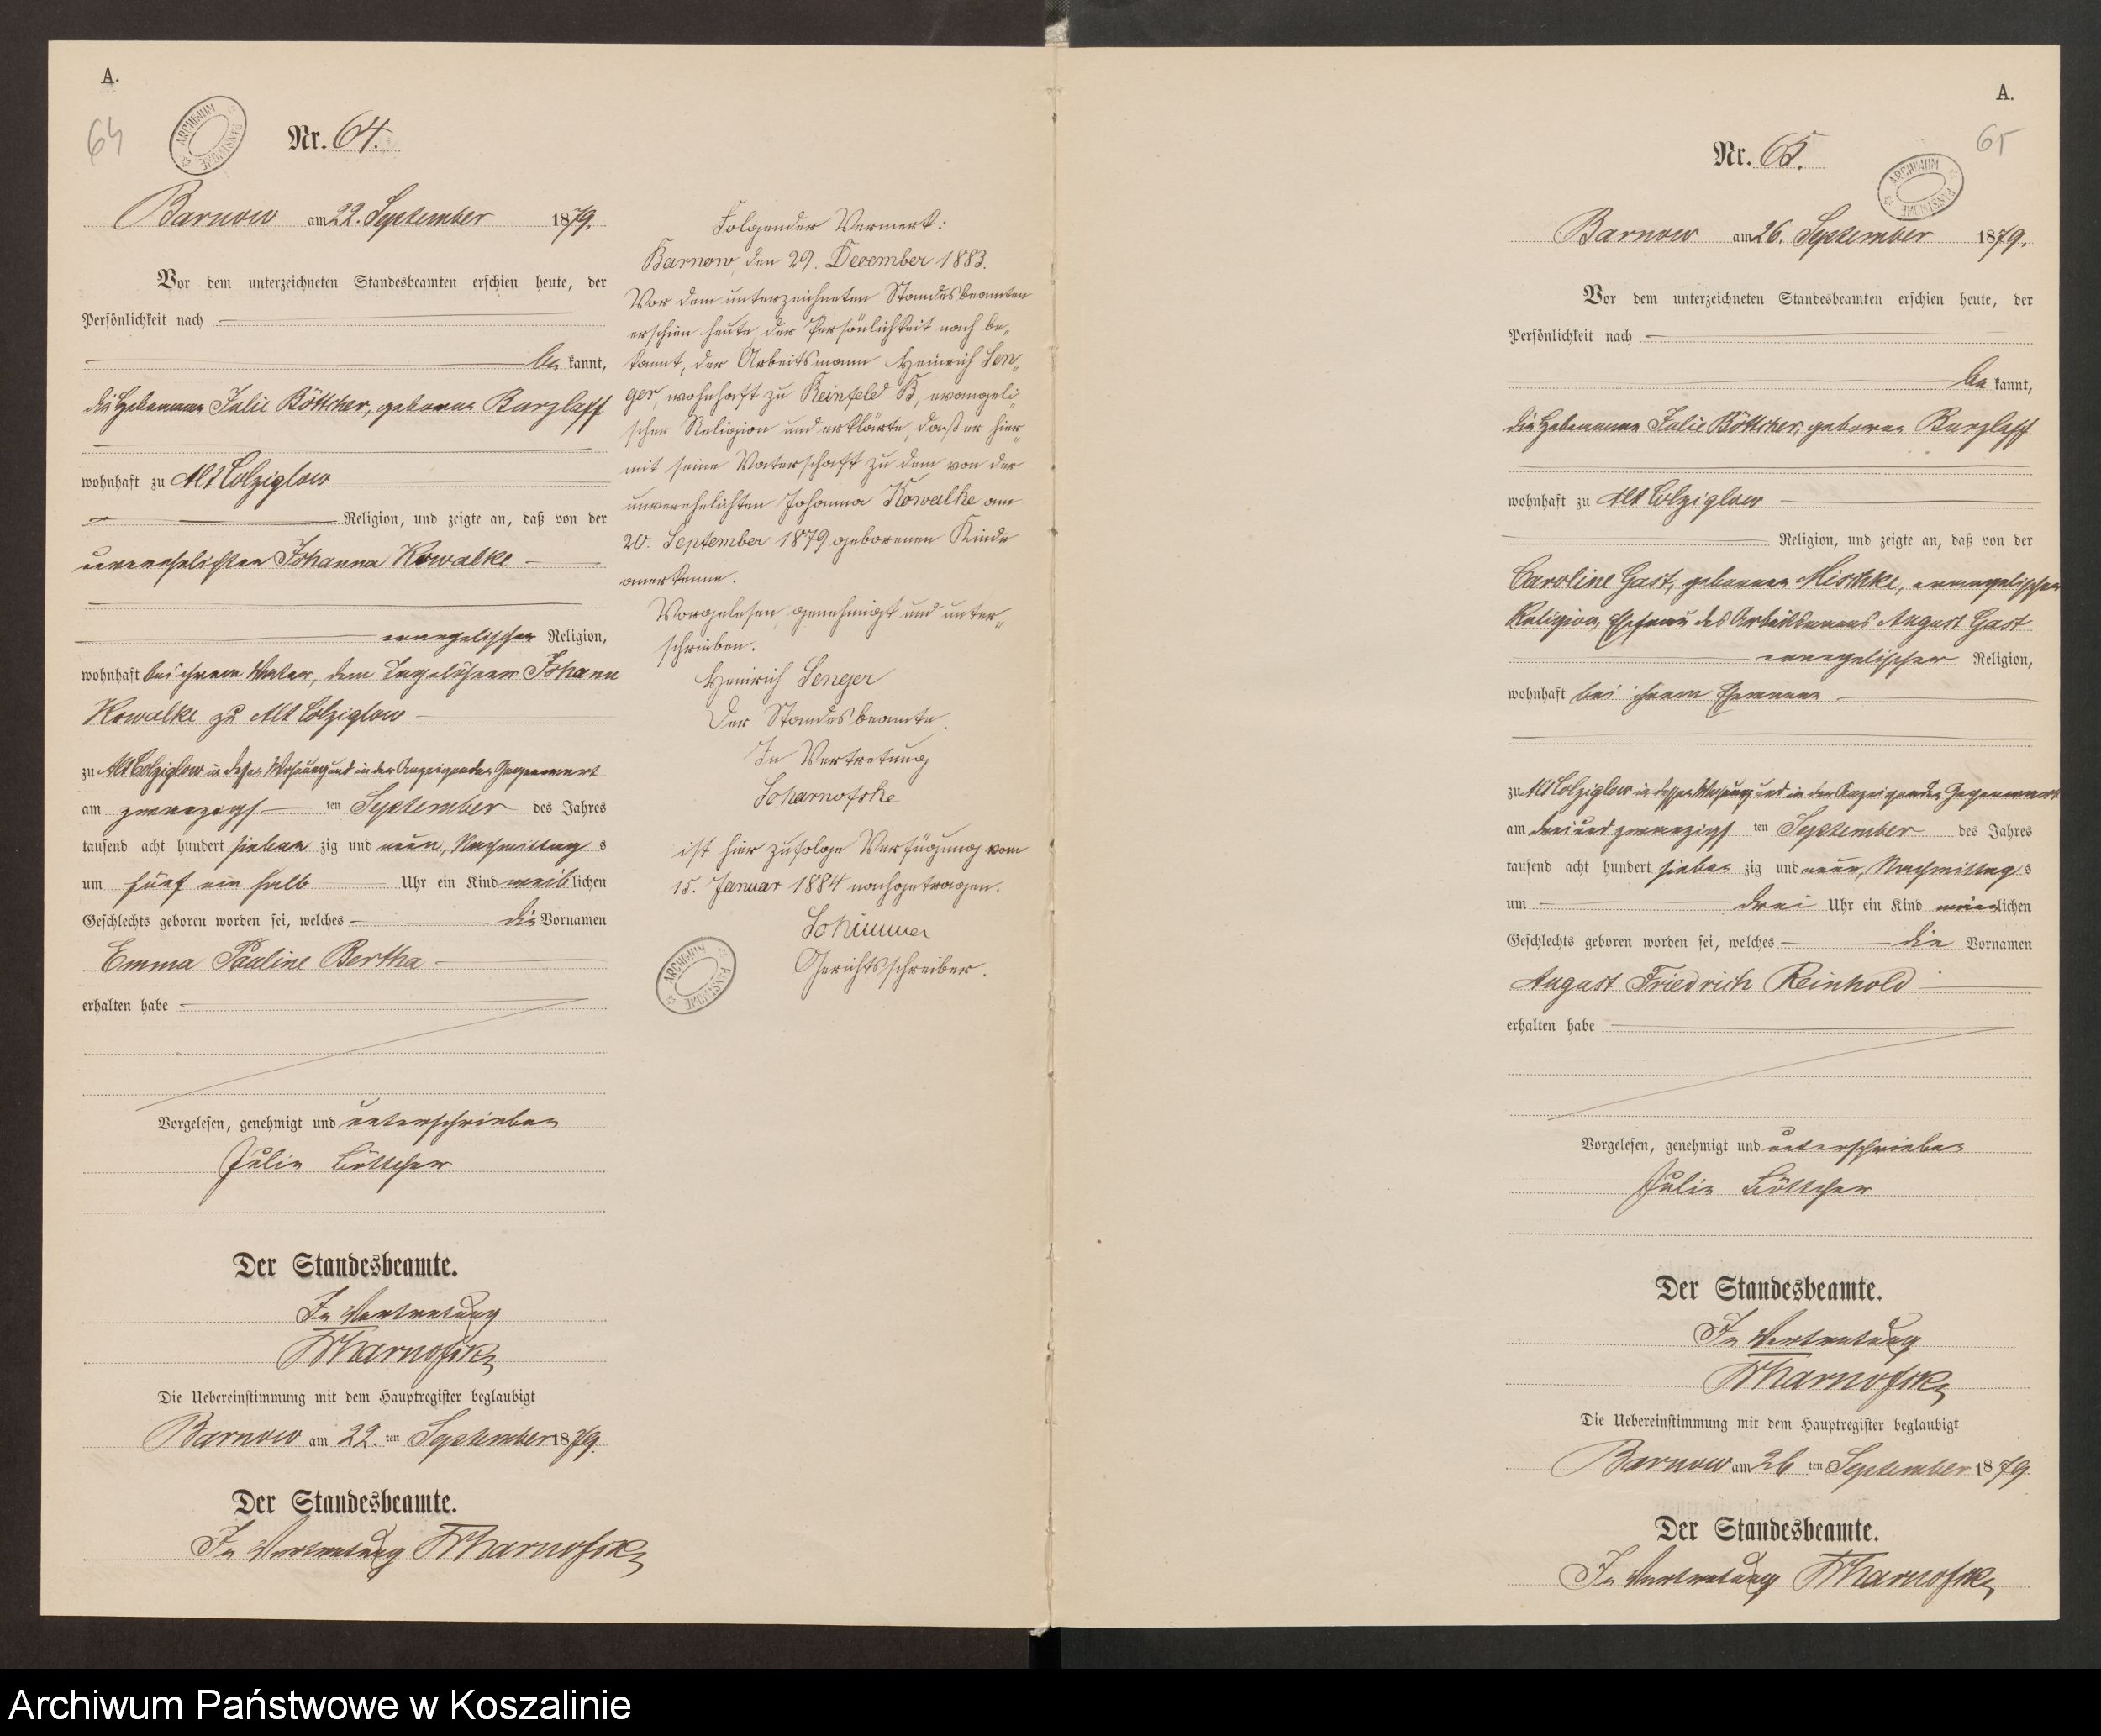 A.
64
ARCHIWUM PAŃSTWOWE
Nr. 64.
Barnow am 22. September 1879.
Vor dem unterzeichneten Standesbeamten erschien heute, der
Persönlichkeit nach
be kannt,
die Hebamme Julie Böttcher, geborene Burzlaff
wohnhaft zu Alt Colziglow
Religion, und zeigte an, daß von der
unverehelichten Johanna Kowalke
evangelischer Religion,
wohnhaft bei ihrem Vater, dem Tagelöhner Johann
Kowalke zu Alt Colziglow
zu Alt Colziglow in dessen Wohnung und in der Anzeigenden Gegenwart
am zwanzigs ten September des Jahres
tausend acht hundert sieben zig und neun, Nachmittag s
um fünf ein halb Uhr ein Kind weib lichen
Geschlechts geboren worden sei, welches die Vornamen
Emma Pauline Bertha
erhalten habe
Vorgelesen, genehmigt und unterschrieben
Julie Böttcher
Der Standesbeamte.
In Vertretung
Scharnofske
Die Uebereinstimmung mit dem Hauptregister beglaubigt
Barnow am 22. ten September 1879.
Der Standesbeamte.
In Vertretung Scharnofske
Folgender Vermerk:
Barnow, den 29. December 1883.
Vor dem unterzeichneten Standesbeamten
erschien heute, der Persönlichkeit nach be-
kannt, der Arbeitsmann Heinrich Sen-
ger, wohnhaft zu Reinfeld B, evangeli-
scher Religion und erklärte, daß er hier-
mit seine Vaterschaft zu dem von der
unverehelichten Johanna Kowalke am
20. September 1879 geborenen Kinde
anerkenne.
Vorgelesen, genehmigt und unter-
schrieben.
Heinrich Senger
Der Standesbeamte.
In Vertretung
Scharnofske
ist hier zufolge Verfügung vom
15. Januar 1884 nachgetragen.
Gerichtsschreiber.
ARCHIWUM PAŃSTWOWE
A.
65
Nr. 65.
ARCHIWUM PAŃSTWOWE
Barnow am 26. September 1879.
Vor dem unterzeichneten Standesbeamten erschien heute, der
Persönlichkeit nach
be kannt,
die Hebamme Julie Böttcher, geborene Burzlaff
wohnhaft zu Alt Colziglow
Religion, und zeigte an, daß von der
Caroline Gast, geborenen Mischke, evangelischer
Religion, Ehefrau des Arbeitsmanns August Gast
evangelischer Religion,
wohnhaft bei ihrem Ehemann
zu Alt Colziglow in dessen Wohnung und in der Anzeigenden Gegenwart
am drei und zwanzigs ten September des Jahres
tausend acht hundert sieben zig und neun, Nachmittag s
um drei Uhr ein Kind männ lichen
Geschlechts geboren worden sei, welches die Vornamen
August Friedrich Reinhold
erhalten habe
Vorgelesen, genehmigt und unterschrieben
Julie Böttcher
Der Standesbeamte.
In Vertretung
Scharnofske
Die Uebereinstimmung mit dem Hauptregister beglaubigt
Barnow am 26 ten September 1879.
Der Standesbeamte.
In Vertretung Scharnofske
Archiwum Państwowe w Koszalinie